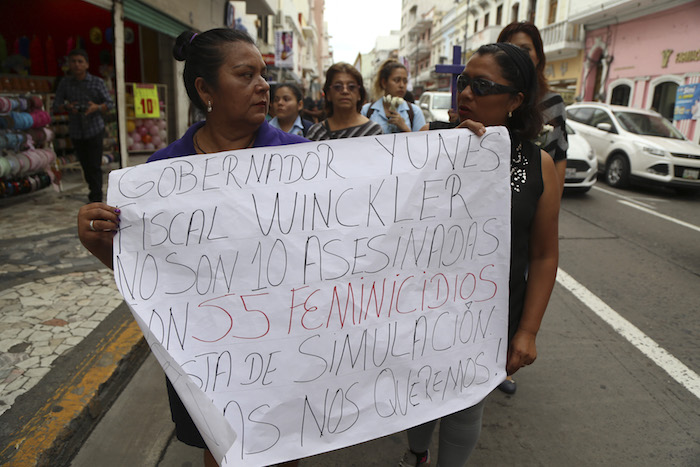 GOBERNADOR YUNES
FISCAL WINCKLER
NO SON 10 ASESINADAS
ON 55 FEMINICIDIOS
ASTA DE SIMULACIÓN
VAS NOS QUEREMOS!
10